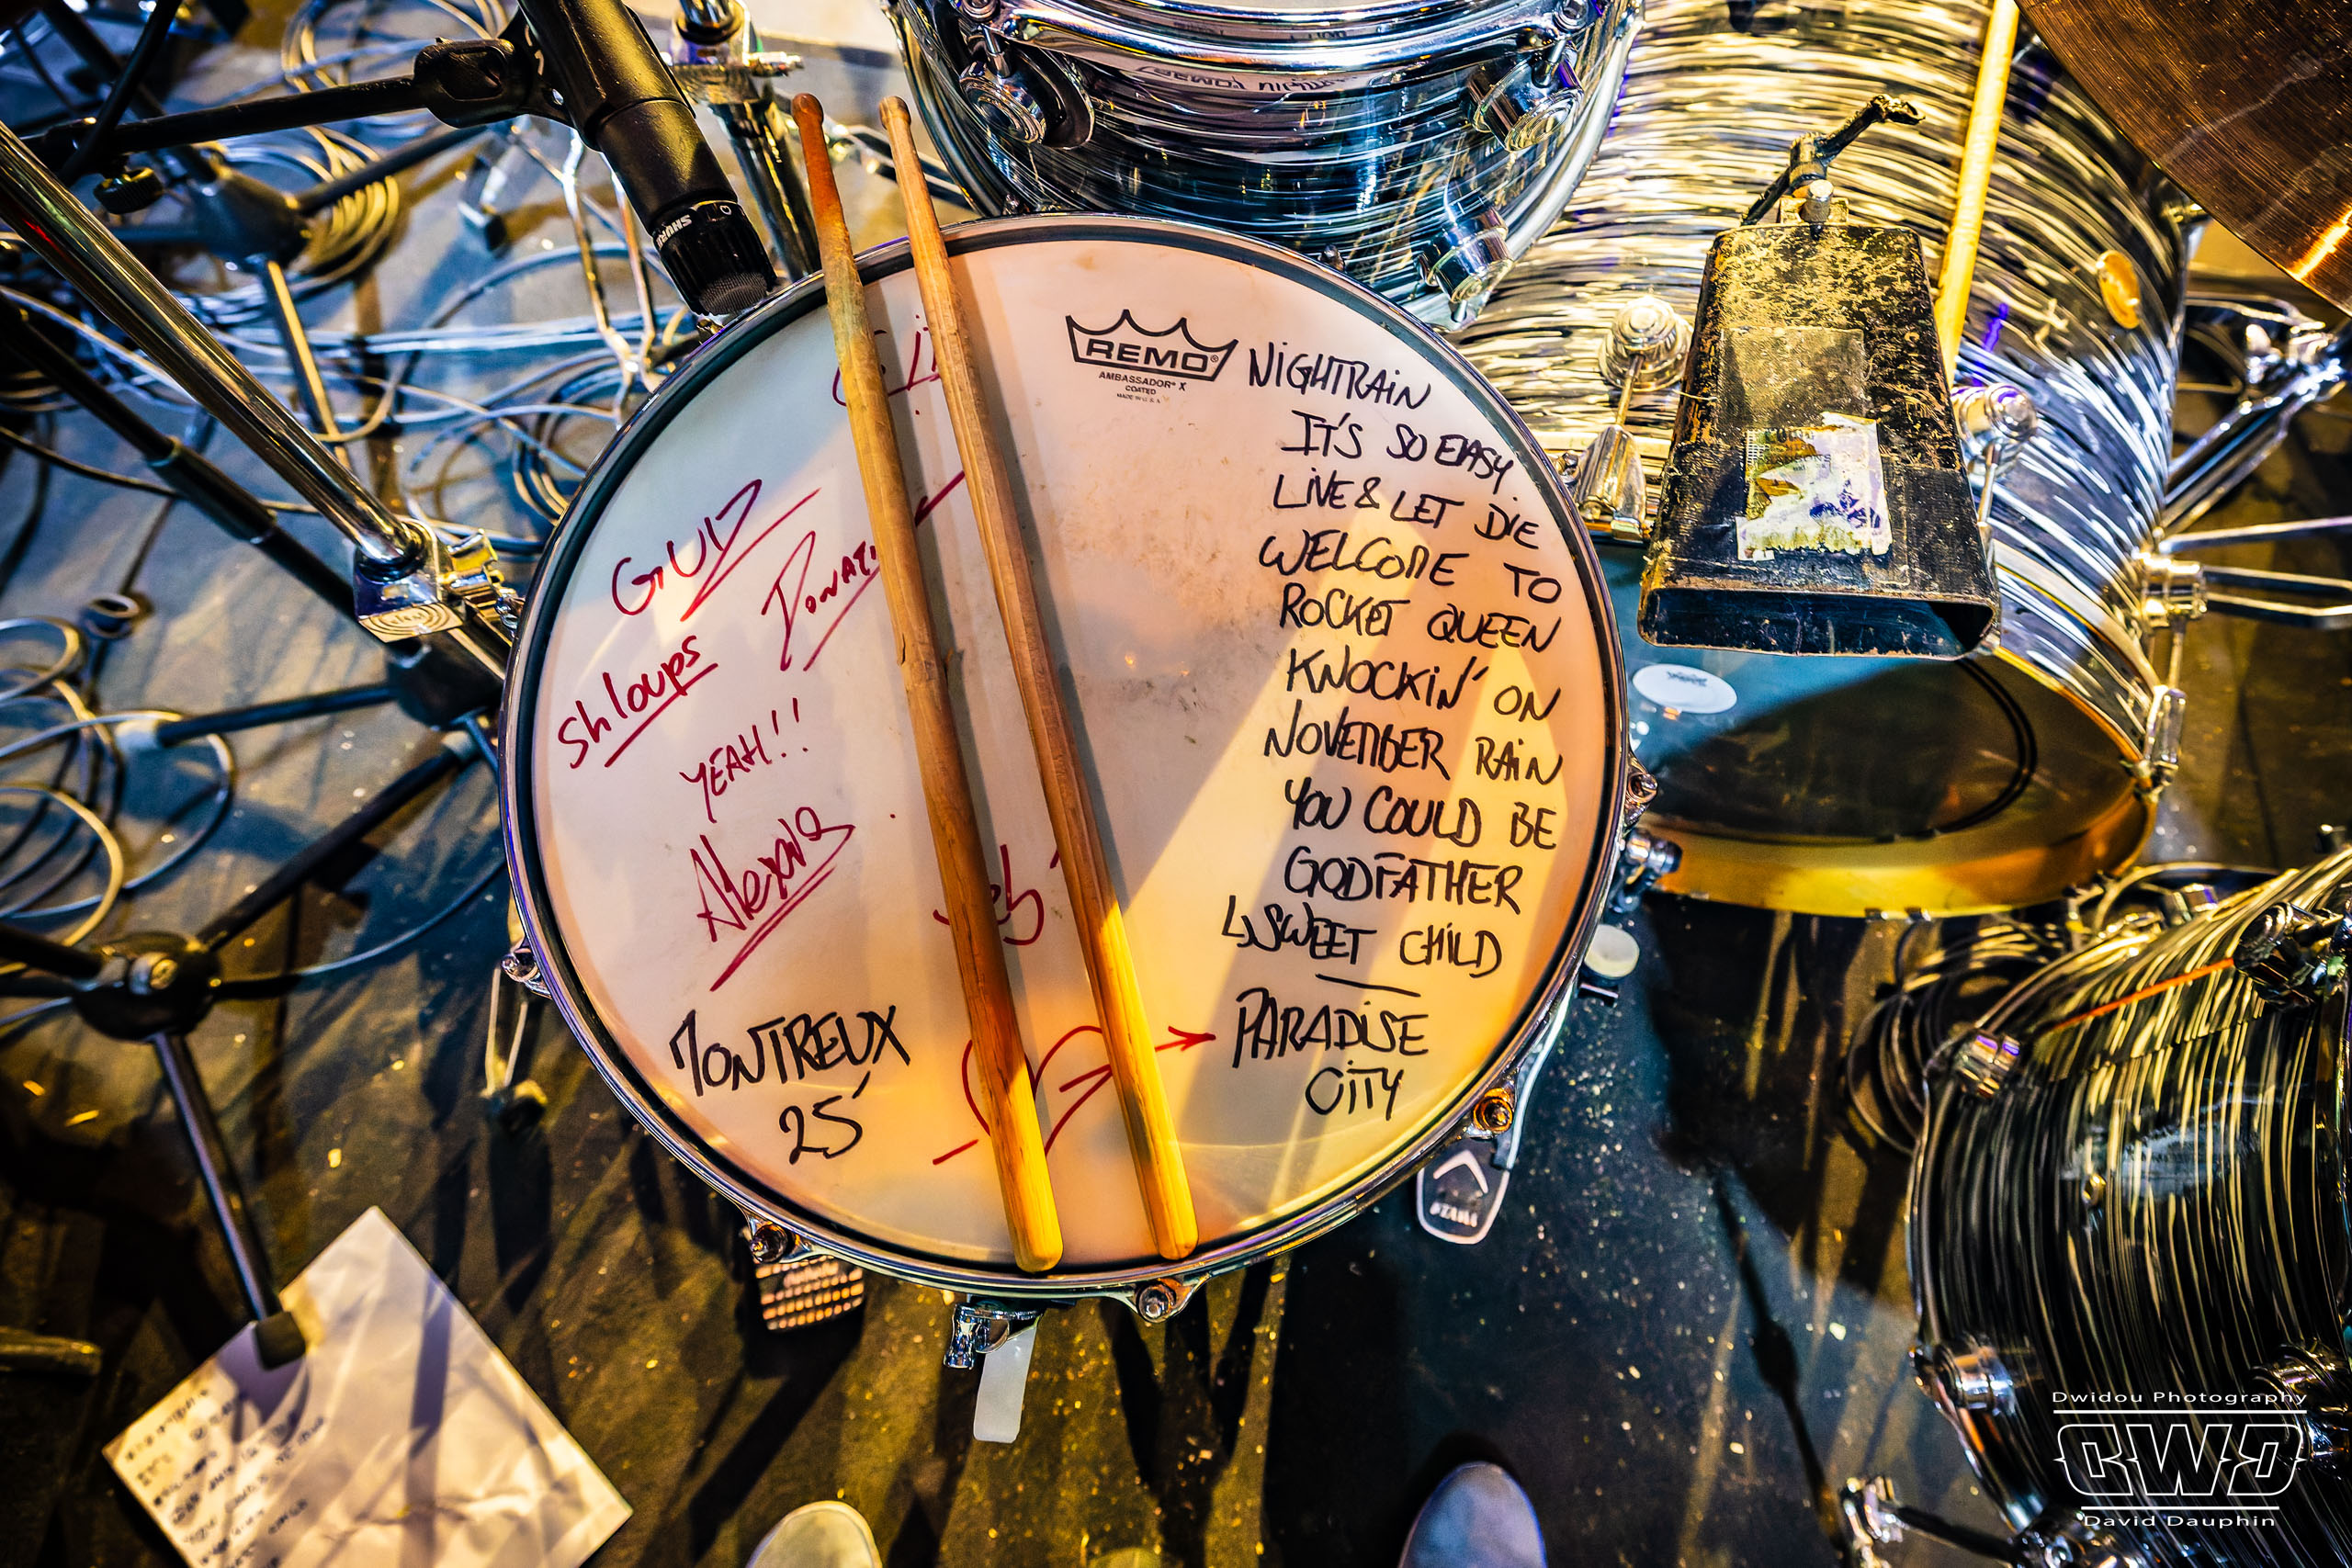 SHURE
REMO®
AMBASSADOR® X
COATED
MADE IN U.S.A.
GUIZ
DONATI
Shloups
YEAH!!
MONTREUX
25'
NIGHTRAIN
IT'S SO EASY
LIVE & LET DIE
WELCOME TO
ROCKET QUEEN
KNOCKIN' ON
NOVEMBER RAIN
YOU COULD BE
GODFATHER
↳ SWEET CHILD
PARADISE
CITY
TAMA
Dwidou Photography
DWD
David Dauphin